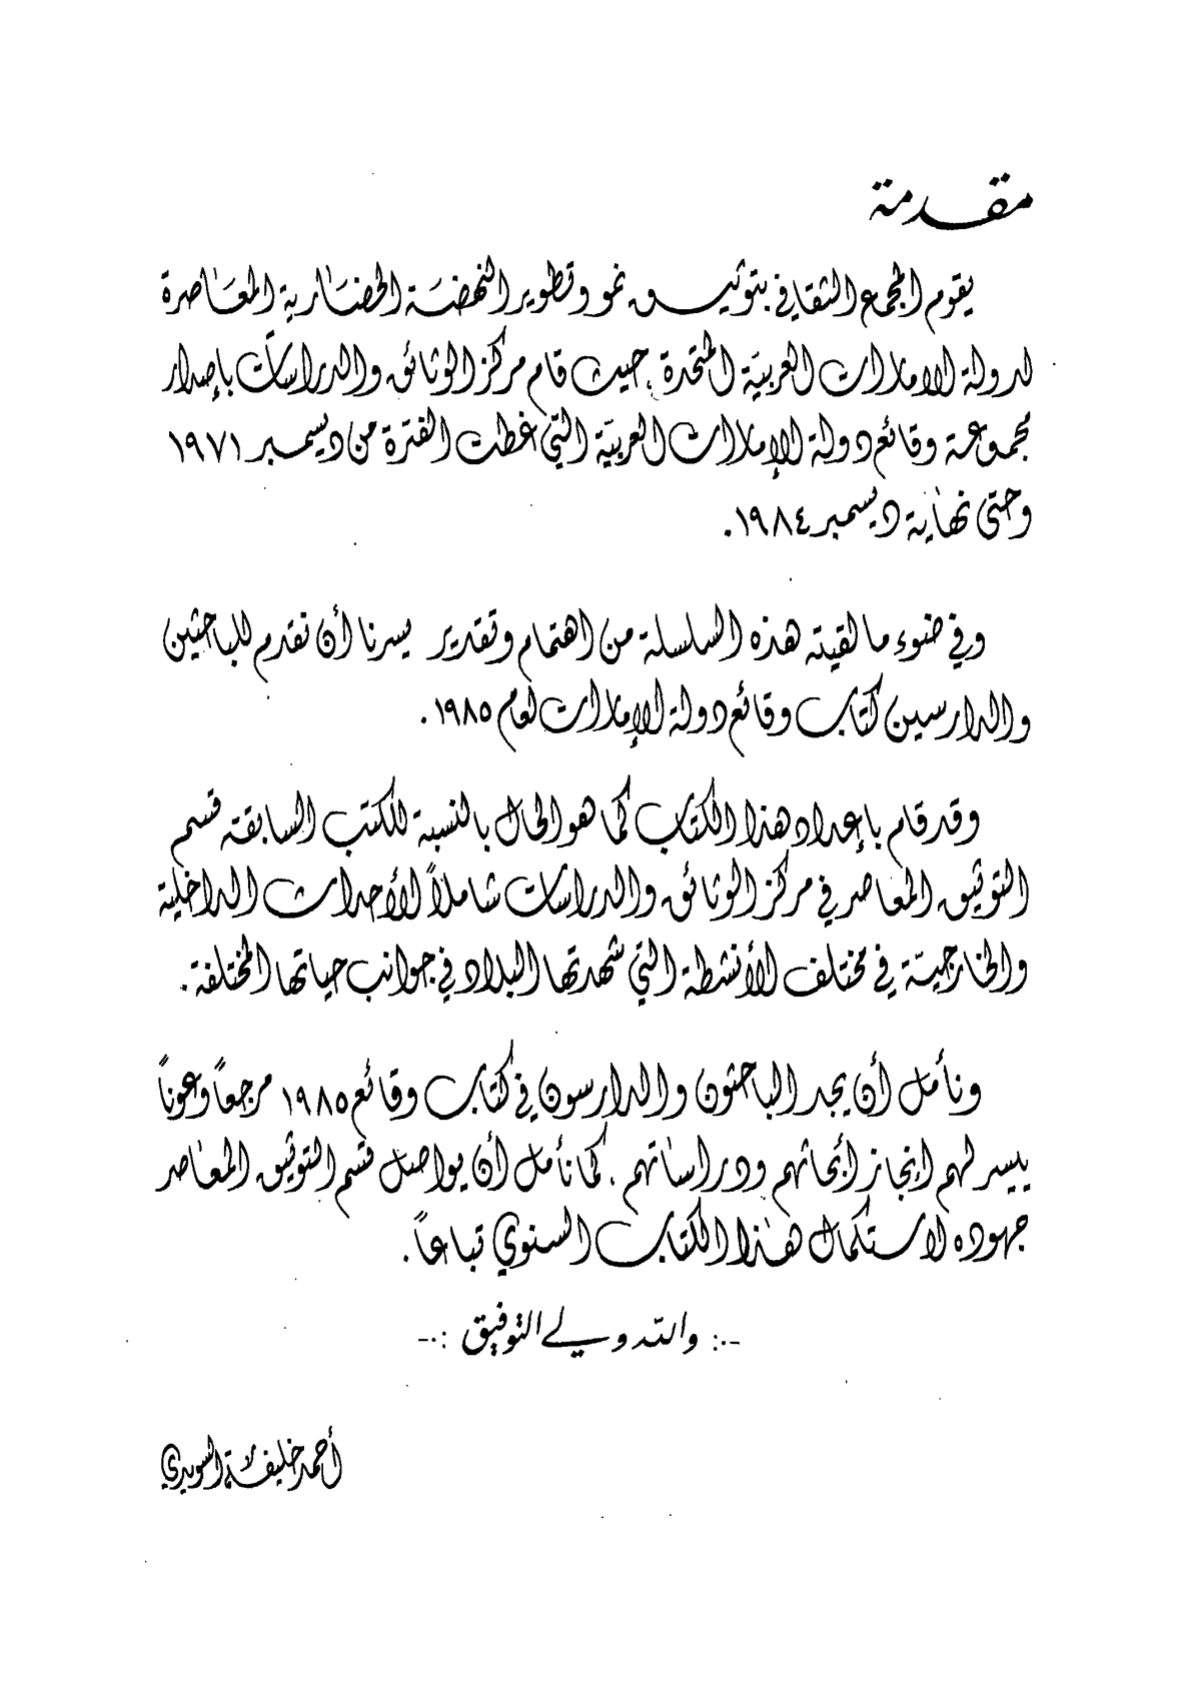 مقدمة
يقوم المجمع الثقافي بتوثيق نمو وتطوير النهضة الحضارية المعاصرة
لدولة الامارات العربية المتحدة، حيث قام مركز الوثائق والدراسات بإصدار
مجموعة وقائع دولة الإمارات العربية التي غطت الفترة من ديسمبر ١٩٧١
وحتى نهاية ديسمبر ١٩٨٤.
وفي ضوء ما لقيته هذه السلسلة من اهتمام وتقدير يسرنا أن نقدم للباحثين
والدارسين كتاب وقائع دولة الإمارات لعام ١٩٨٥.
وقد قام بإعداد هذا الكتاب كما هو الحال بالنسبة للكتب السابقة قسم
التوثيق المعاصر في مركز الوثائق والدراسات شاملاً الأحداث الداخلية
والخارجية في مختلف الأنشطة التي شهدتها البلاد في جوانب حياتها المختلفة.
ونأمل أن يجد الباحثون والدارسون في كتاب وقائع ١٩٨٥ مرجعاً وعوناً
ييسر لهم إنجاز أبحاثهم ودراساتهم. كما نأمل أن يواصل قسم التوثيق المعاصر
جهوده لاستكمال هذا الكتاب السنوي تباعاً.
-:. والله ولي التوفيق :.-
أحمد خليفة السويدي